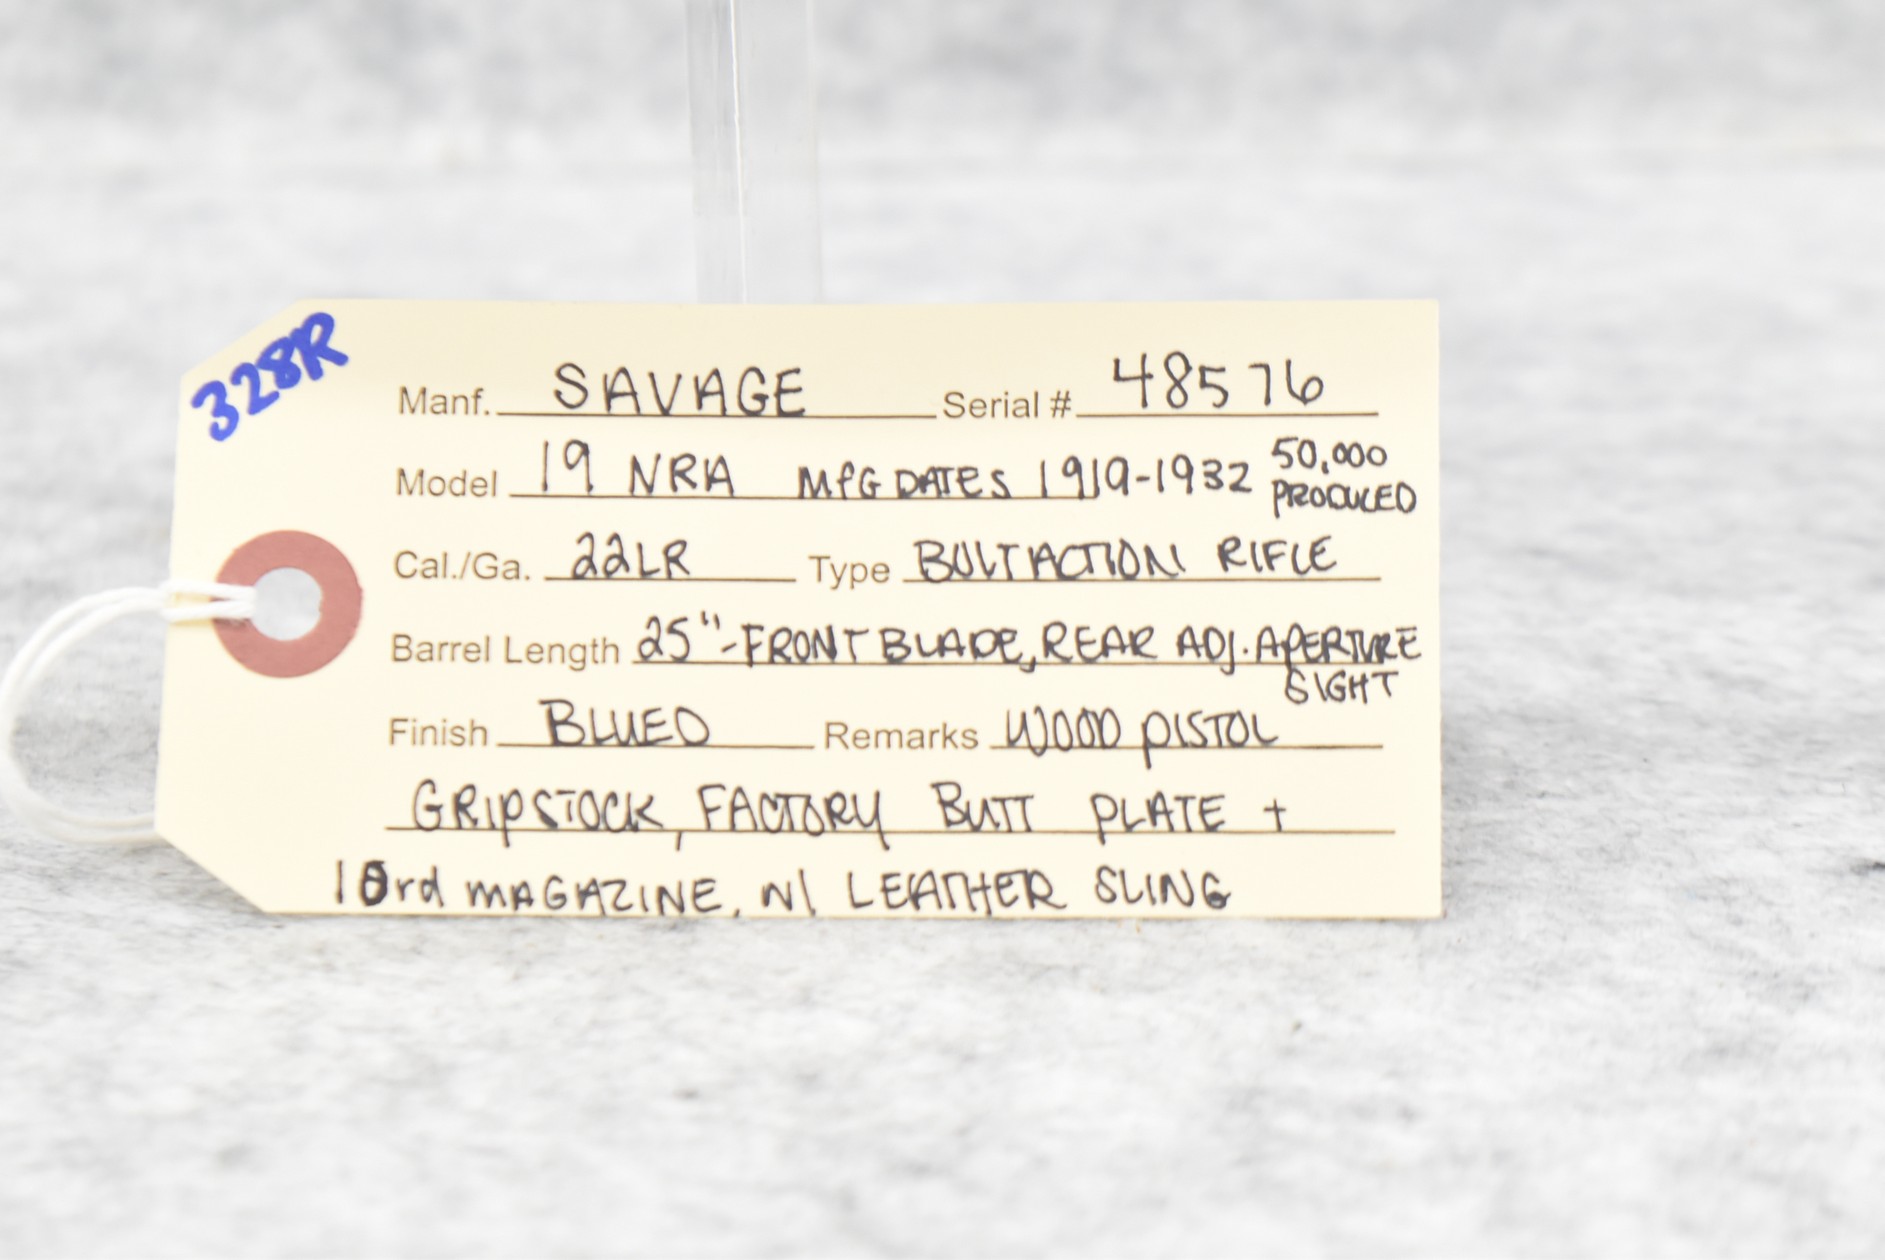 328R
Manf. SAVAGE Serial # 48576
Model 19 NRA MFG DATES 1919-1932 50,000 PRODUCED
Cal./Ga. 22LR Type BOLT ACTION RIFLE
Barrel Length 25"-FRONT BLADE, REAR ADJ. APERTURE
SIGHT
Finish BLUED Remarks WOOD PISTOL
GRIP STOCK, FACTORY BUTT PLATE +
10rd MAGAZINE, W/ LEATHER SLING